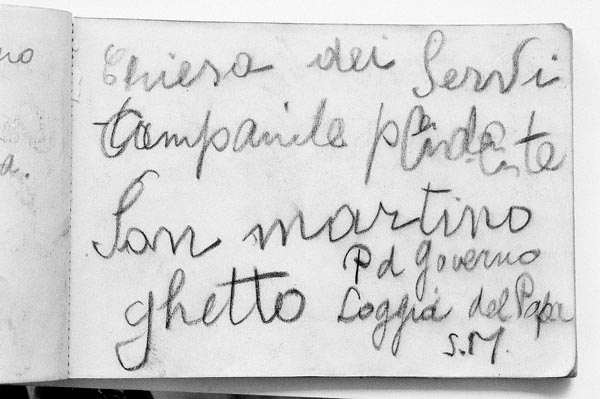 no
a.
Chiesa dei Servi
Campanile pendente
San martino
ghetto
P d Governo
Loggia del Papa
S.M.